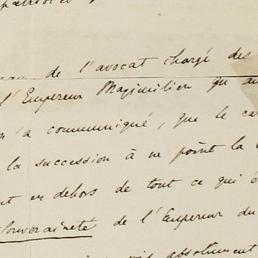 de l'avocat chargé des
l'Empereur Maximilien qu'au
n'a communiqué, que le ca
la succession à ne point la
nt en dehors de tout ce qui é
Souveraineté de l'Empereur du
absolument